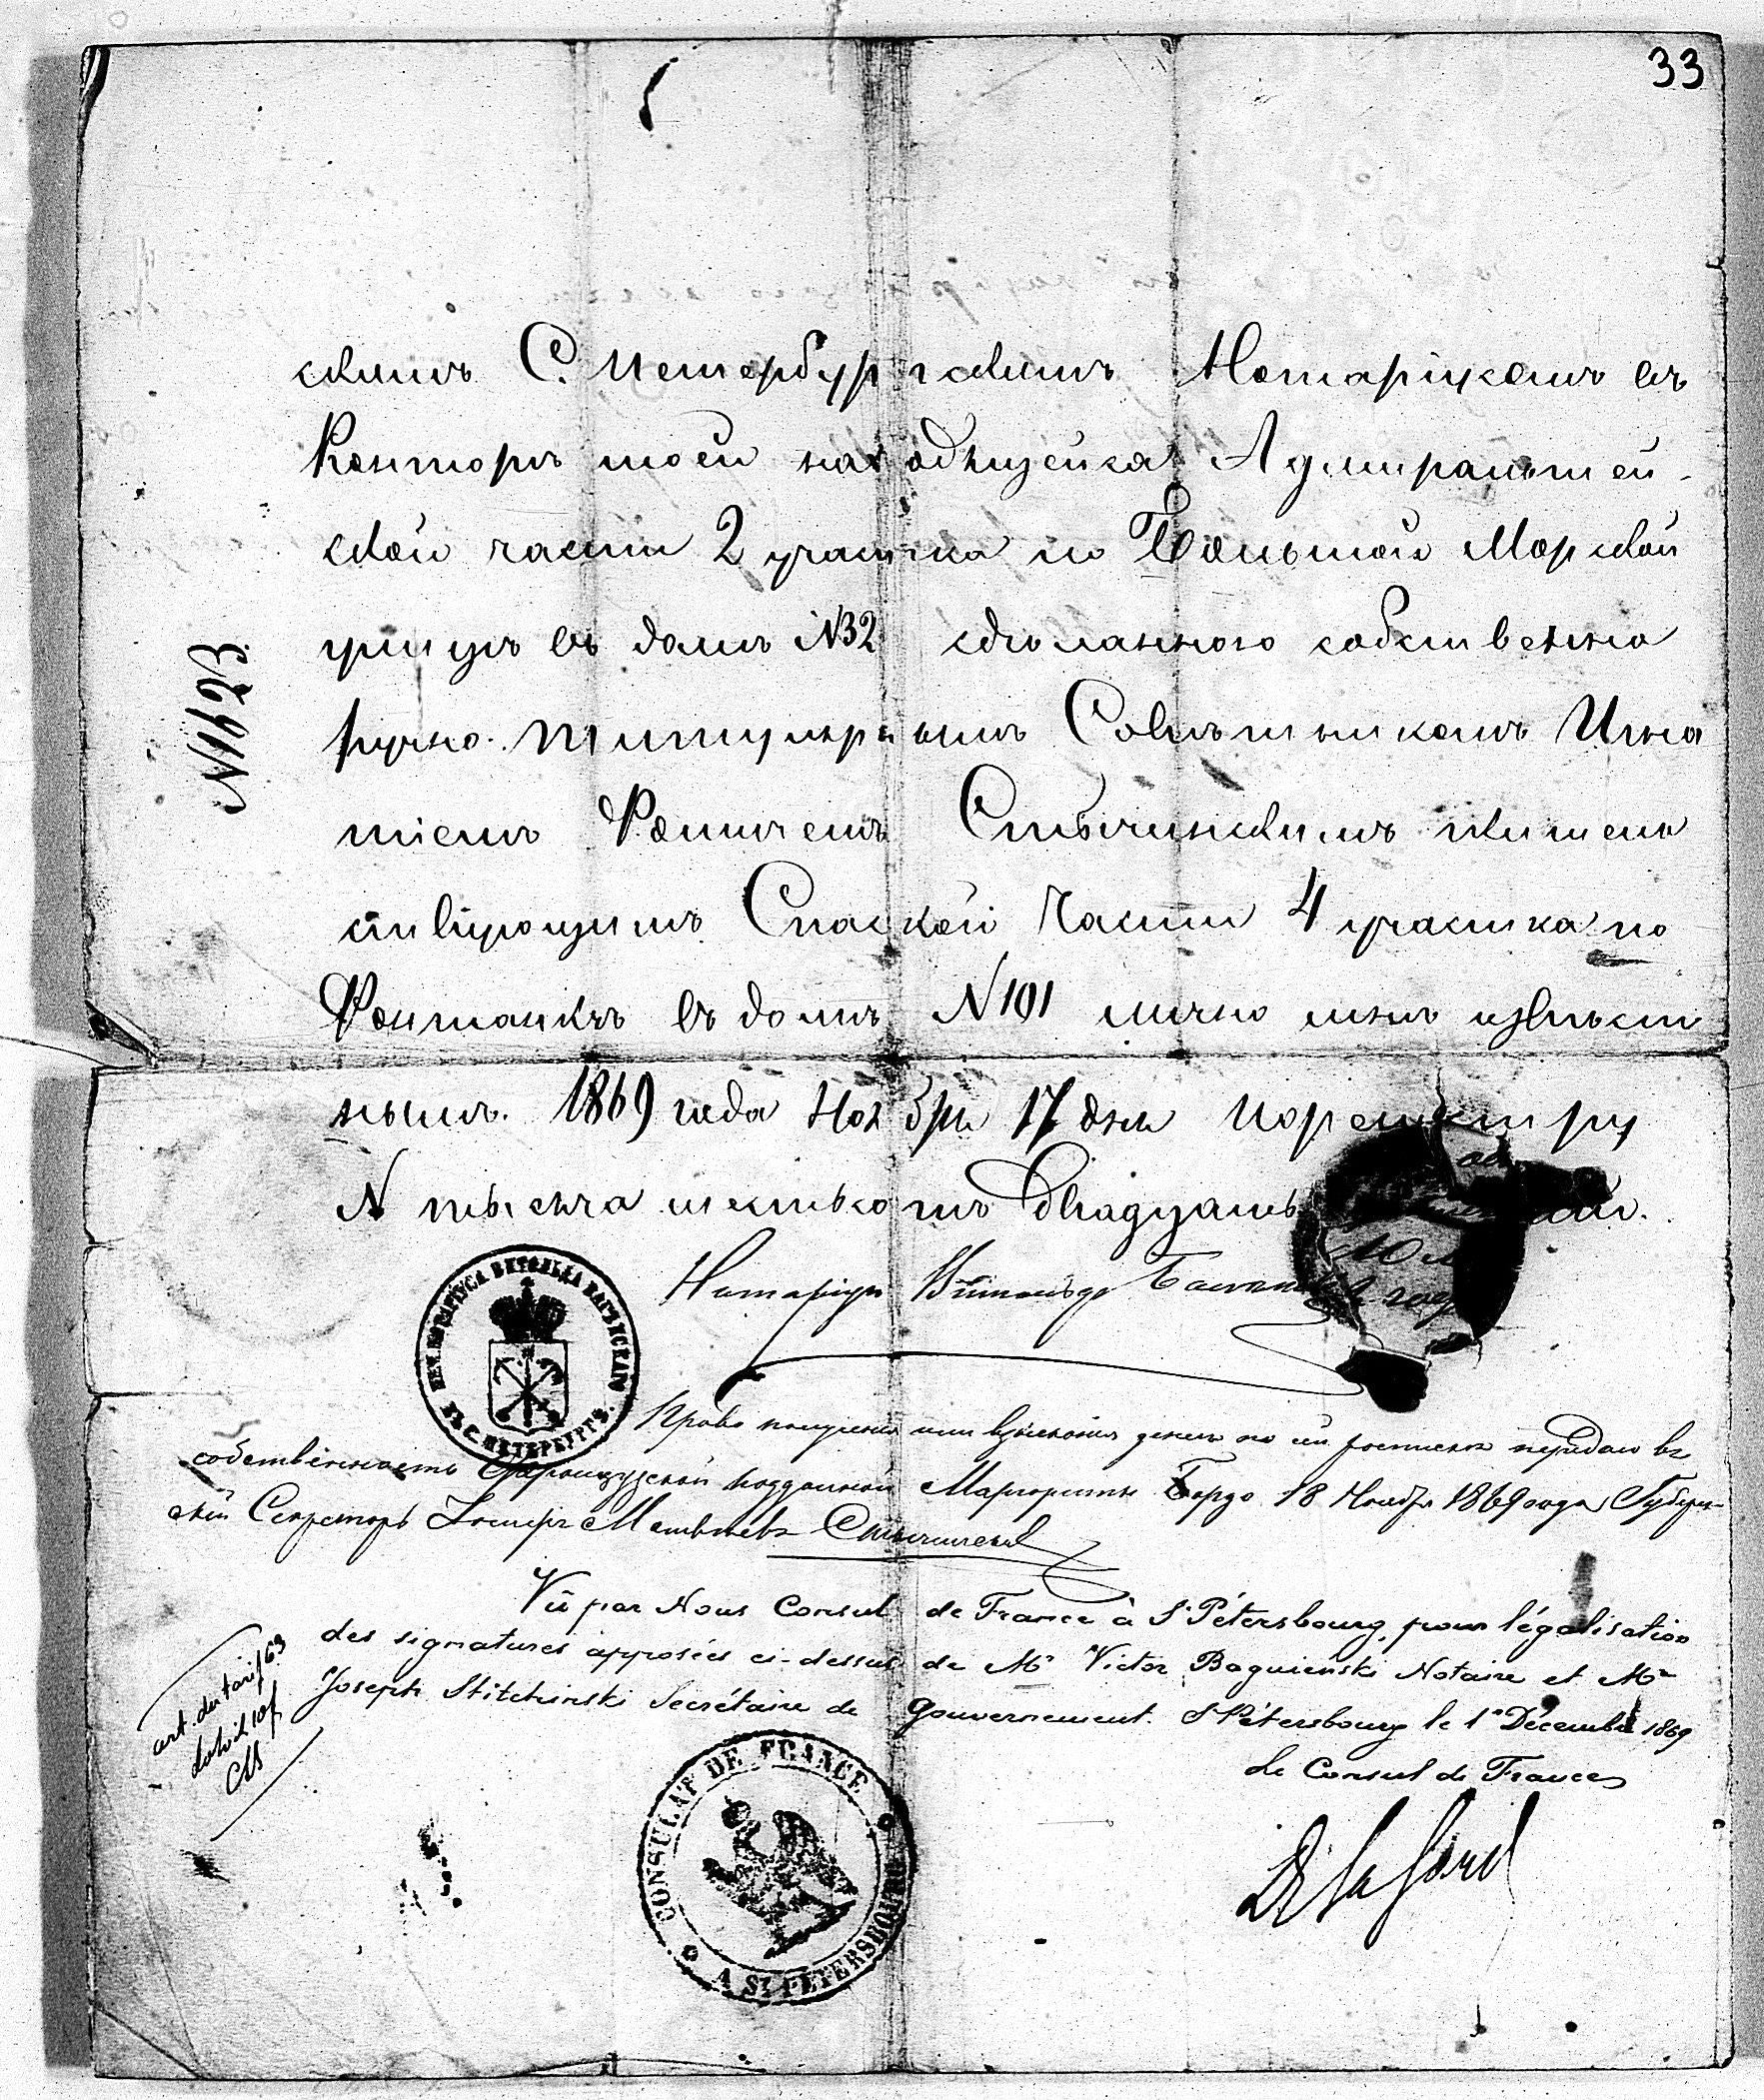 33
скимъ С. Петербургскимъ Нотаріусомъ въ
Конторѣ моей находящейся Адмиралтей-
ской части 2 участка по Большой Морской
улицѣ въ домѣ №32 сдѣланнаго собственно
ручно Титулярнымъ Совѣтникомъ Игна
тіемъ Ѳомичемъ Стычинскимъ жительс
ствующимъ Спаской Части 4 участка по
Фонтанкѣ въ домѣ №101 лично мнѣ извѣст
нымъ. 1869 года Ноября 17 дня по реэстру
N тысяча шестьсотъ двадцать
№1623
Нотаріусъ Витольдъ
ПЕЧ. НОТАРІУСА ВИТОЛЬДА БАГѢНСКАГО ВЪ С. ПЕТЕРБУРГѢ.
Право полученія или взысканія денегъ по сей роспискѣ передаю въ
собственность Французской подданной Маргаритѣ Бордо 18 Ноября 1869 года Губерн-
скій Секретарь Іосифъ Стычинскій
Vû par Nous Consul de France à St Pétersbourg, pour légalisation
des signatures apposées ci-dessus de Mr Victor Baguienski Notaire et Mr
Joseph Stitchinski Secrétaire de Gouvernement. St Pétersbourg le 1er Décembre 1869
Le Consul de France
art. du tarif 63
CONSULAT DE FRANCE A ST PETERSBOURG